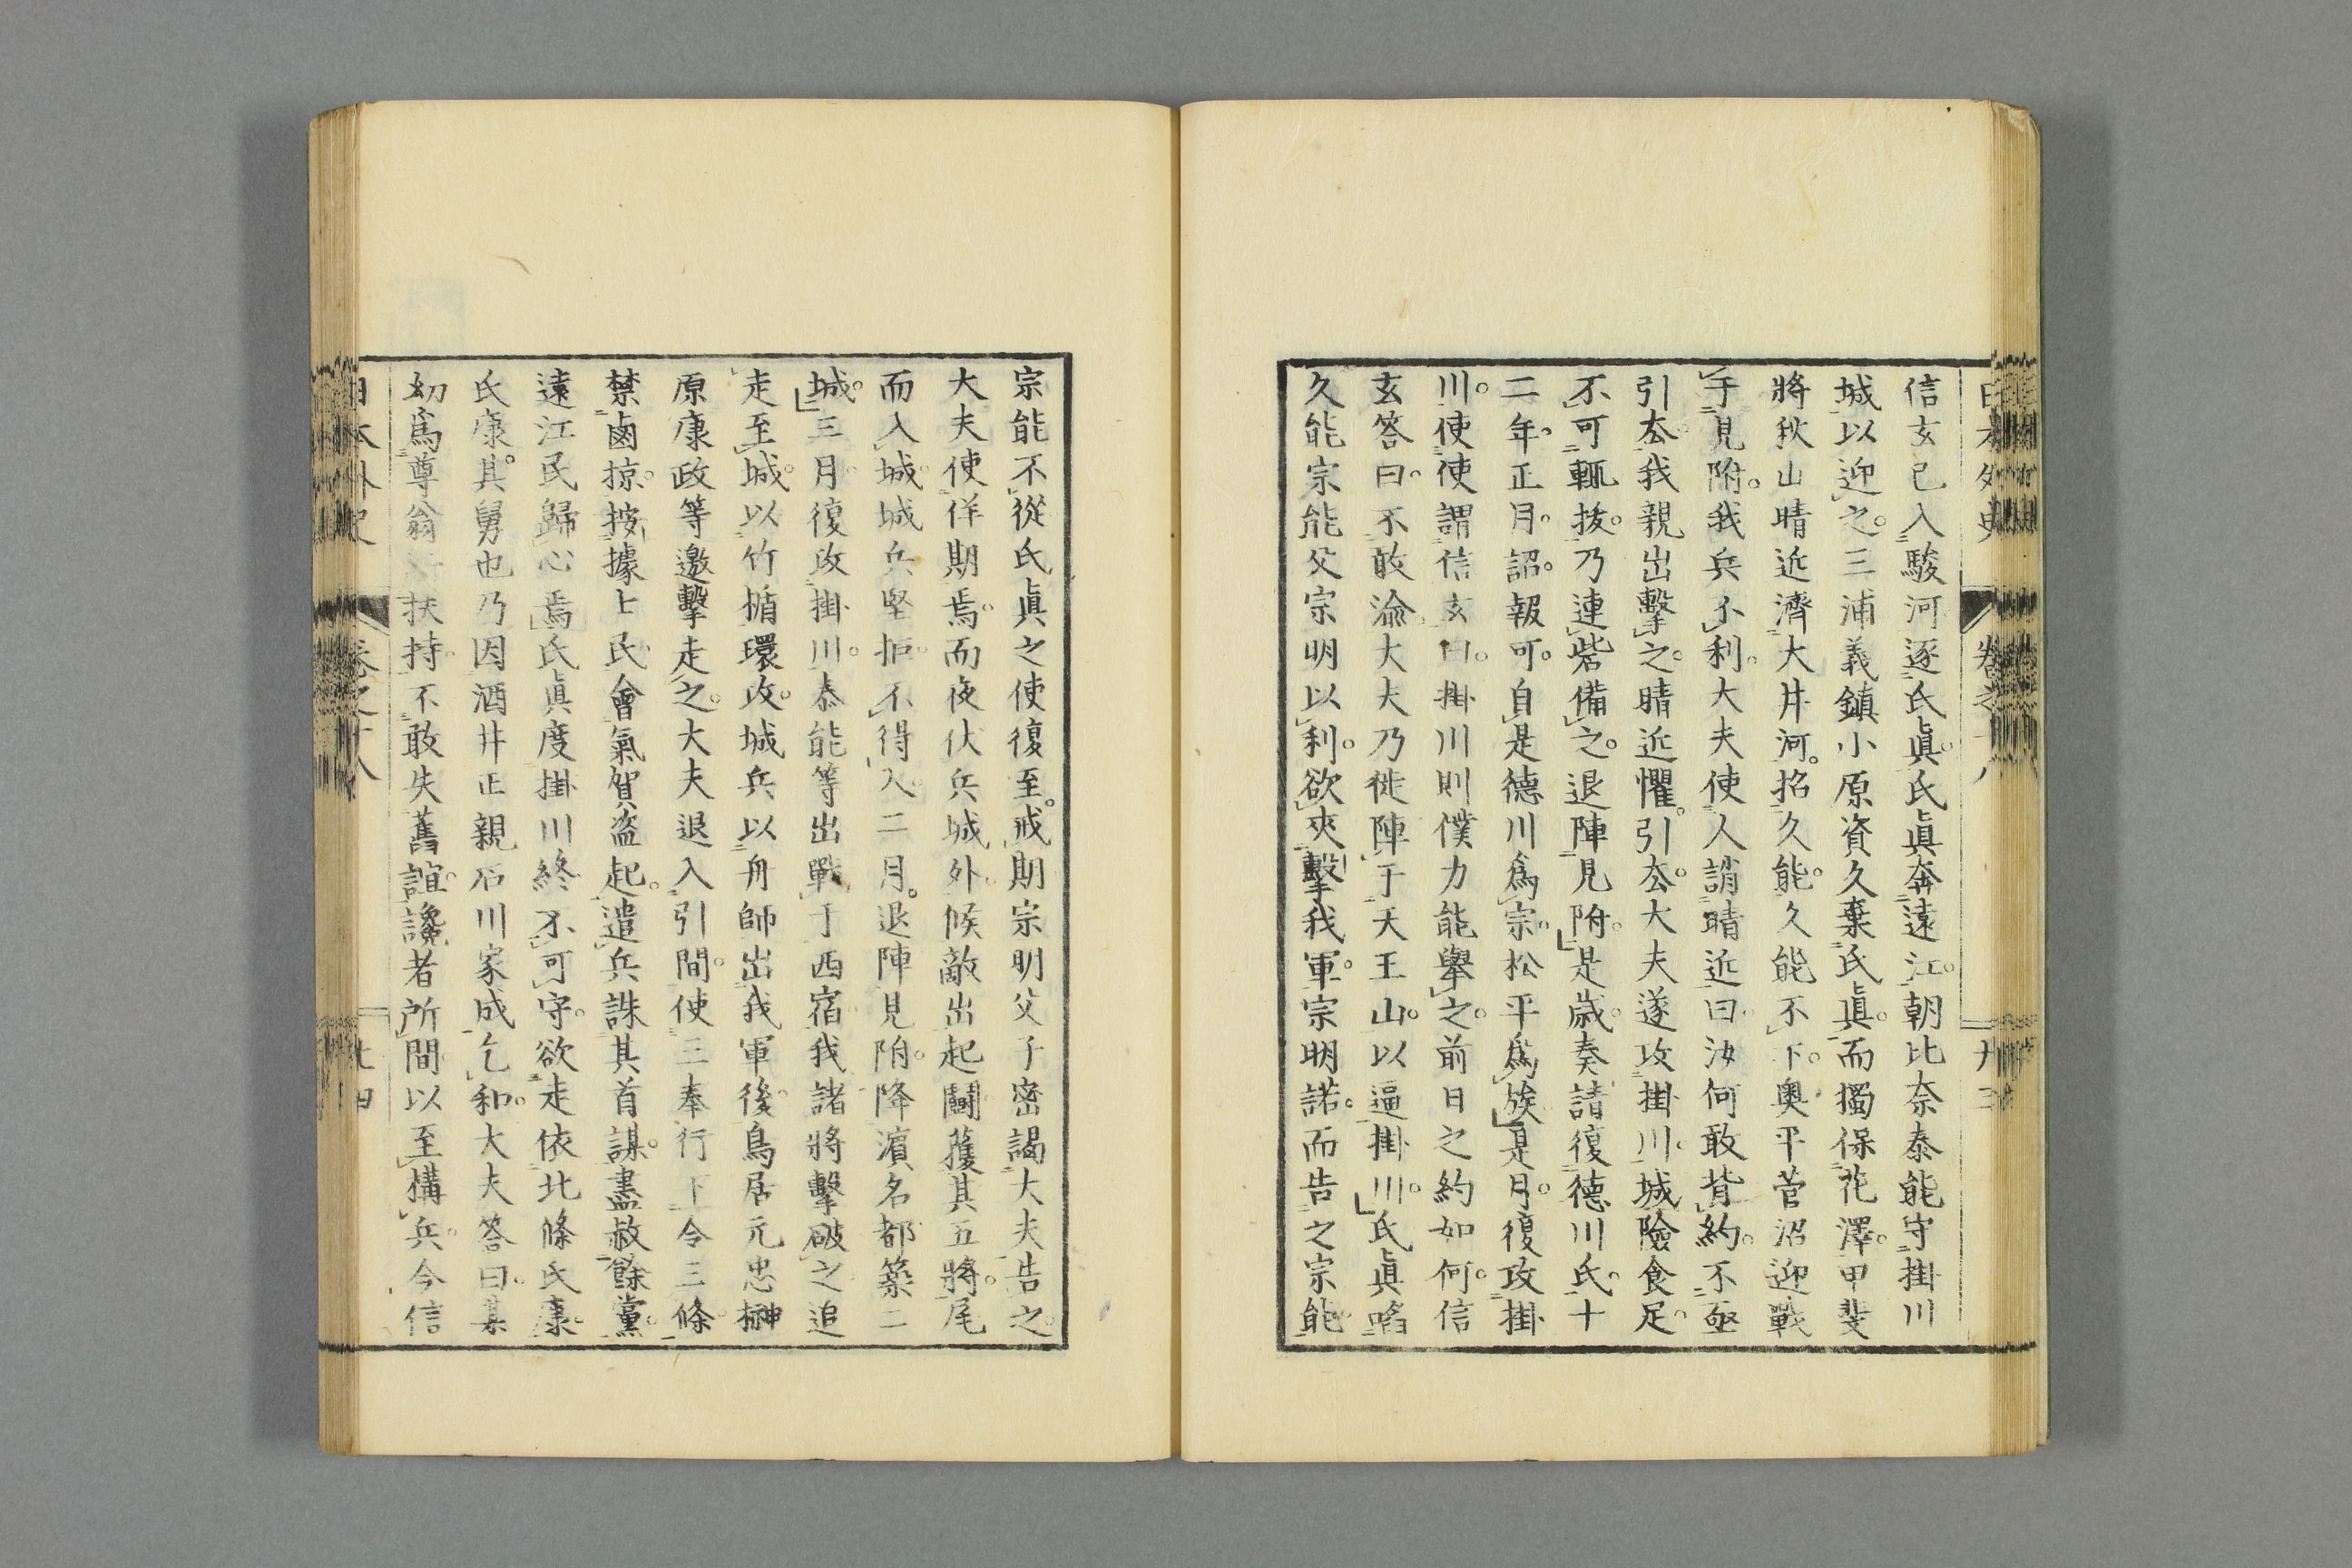 日本外史 卷之十八 廿三
信玄已入駿河逐氏眞。氏眞奔遠江。朝比奈泰能守掛川
城以迎之。三浦義鎮小原資久棄氏眞。而獨保花澤。甲斐
將秋山晴近濟大井河。招久能。久能不下。奧平菅沼迎戰
于見附。我兵不利。大夫使人誚晴近曰。汝何敢背約。不亟
引去。我親出擊之。晴近懼。引去。大夫遂攻掛川。城險食足。
不可輒拔。乃連砦備之。退陣見附。是歲。奏請復德川氏。十
二年。正月。詔。報可。自是德川爲宗。松平爲族。是月。復攻掛
川。使使謂信玄曰。掛川則僕力能舉之。前日之約如何。信
玄答曰。不敢渝。大夫乃徙陣于天王山。以逼掛川。氏眞啗
久能宗能父宗明以利。欲夾擊我軍。宗明諾。而告之宗能。
宗能不從氏眞之使復至。戒期宗明父子密謁大夫告之。
大夫使佯期焉。而夜伏兵城外。候敵出起鬪。獲其五將。尾
而入城。城兵堅拒。不得入。二月。退陣見附。降濱名都築二
城。三月。復攻掛川。泰能等出戰于西宿。我諸將擊破之追
走至城。以竹楯環攻。城兵以舟師出我軍後。鳥居元忠榊
原康政等邀擊走之。大夫退入引間。使三奉行下令三條。
禁鹵掠。按據士民。會氣賀盜起。遣兵誅其首謀。盡赦餘黨。
遠江民歸心焉。氏眞度掛川終不可守。欲走依北條氏康。
氏康。其舅也。乃因酒井正親石川家成乞和。大夫答曰。某
幼爲尊翁所扶持。不敢失舊誼。讒者所間以至構兵。今信
日本外史 卷之十八 廿四